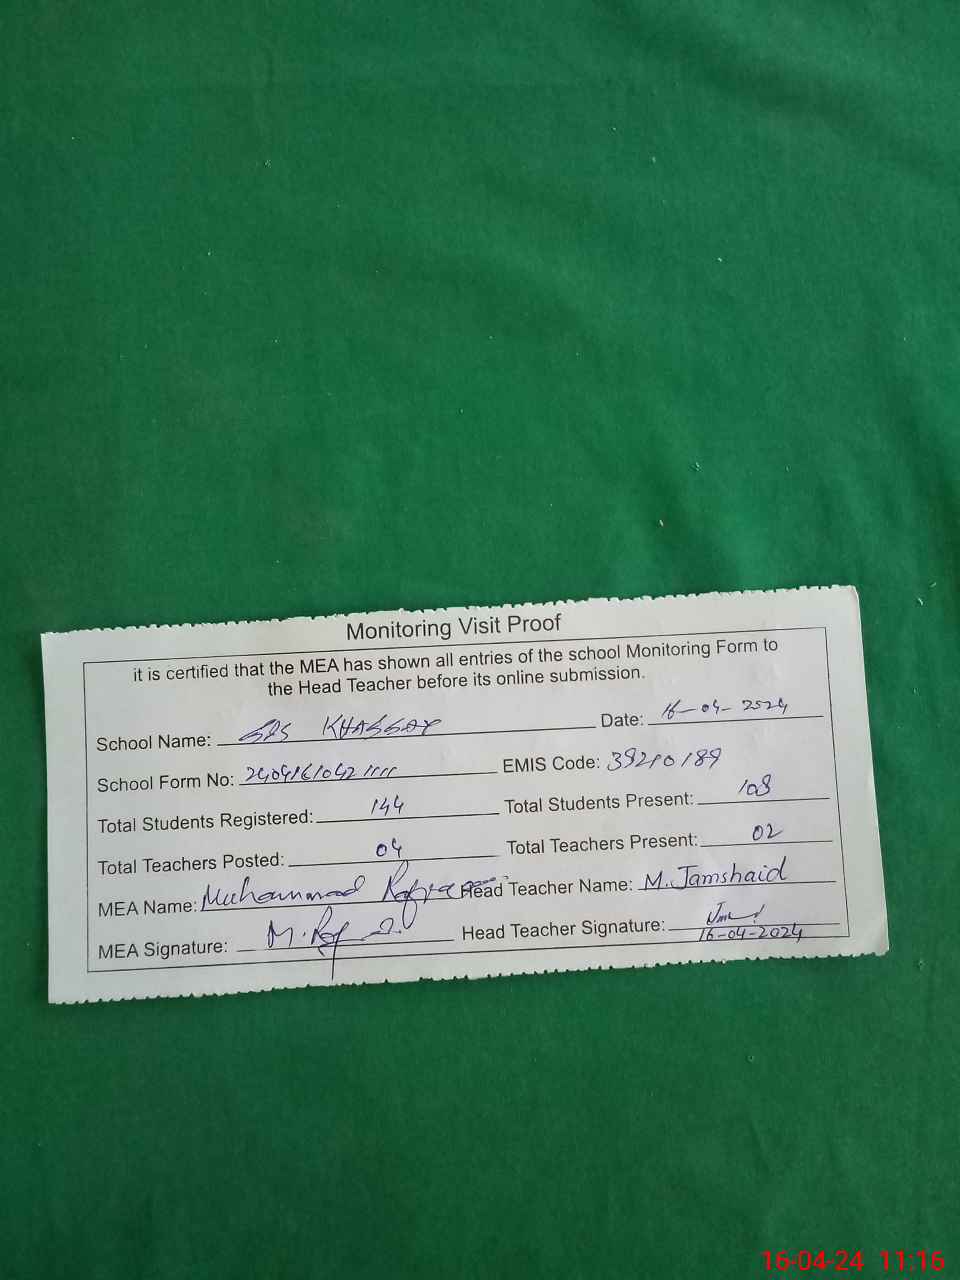 Monitoring Visit Proof
it is certified that the MEA has shown all entries of the school Monitoring Form to
the Head Teacher before its online submission.
School Name: GPS KHASSAY Date: 16-04-2024
School Form No: EMIS Code: 39210189
Total Students Registered: 144 Total Students Present: 108
Total Teachers Posted: 04 Total Teachers Present: 02
MEA Name: Muhammad Head Teacher Name: M. Jamshaid
MEA Signature: Head Teacher Signature:
16-04-2024
16-04-24 11:16